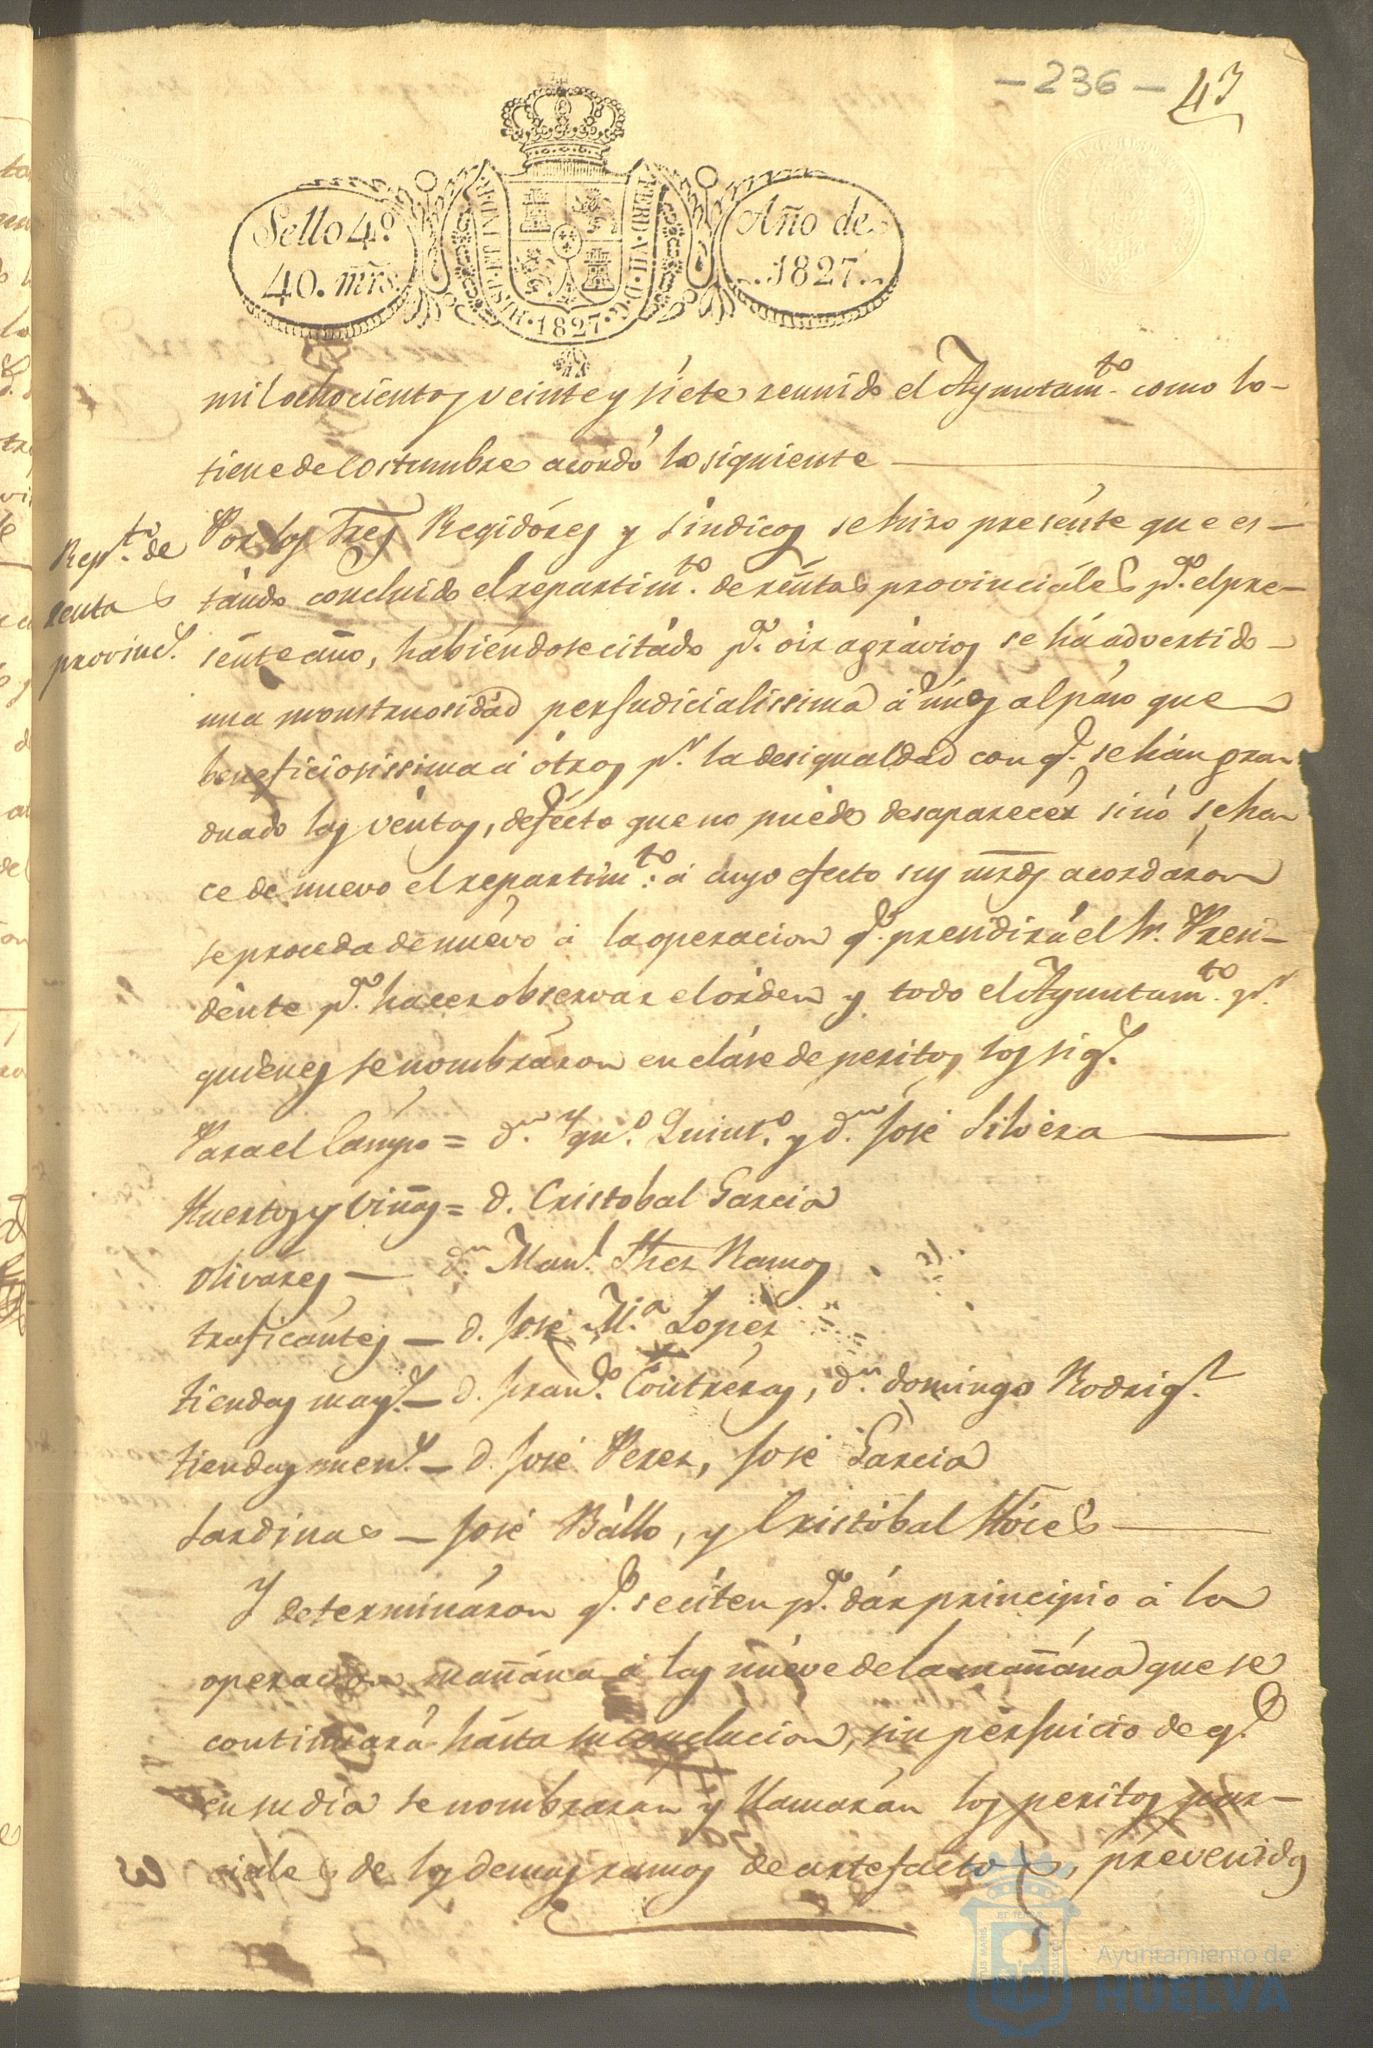 - 236 - 43
Sello 4º
40. mrs.
HISP. ET IND. R. FERD. VII. D. G.
1827
Año de
1827
mil ochocientos veinte y siete reunido el Ayuntamto. como lo
tiene de costumbre acordó lo siguiente
Repto. de
rentas
provincs.
Por los Sres Regidóres y Síndicos se hizo presénte que es-
tándo concluido el repartimto. de réntas provinciáles pª. el pre-
sénte año, habiéndose citádo pª. oir agrávios se há advertido
una monstruosidád perjudicialissima á únos al páso que
beneficiosissima á ótros pr. la desigualdad con qe. se hán gra-
duado las véntas, defécto que no puéde desaparecér sinó se ha-
ce de nuevo el repartimto. á cuyo efecto sus mrds acordáron
se proceda de nuévo á la operacion qe. presidirá el Sr. Presi-
dénte pª. hacer observar el órden y todo el Ayuntamto. pr.
quienes se nombráron en cláse de peritos los sigs.
Para el Campo = dn. Joqn. Quinto. y dn. José Silvéra
Huertos y Viñas = d. Cristobal Garcia
Olivares — dn. Manl. Shez Ramos
traficántes — d. José Mª Lopez
tiendas mays. — d. Franco. Contréras, dn. domingo Rodrigz.
tiendas mens. — d. José Perez, José Garcia
Sardinas — José Bállo, y Cristóbal Hóces
Y determináron qe. se cíten pª. dár principio á la
operacion mañána á las nuéve de la mañána que se
continuará hásta su conclucion, sin perjuicio de qe.
en su día se nombraran y llamarán los peritos par-
ciales de los demas ramos de artefactos, prevenidos
Ayuntamiento de
HUELVA